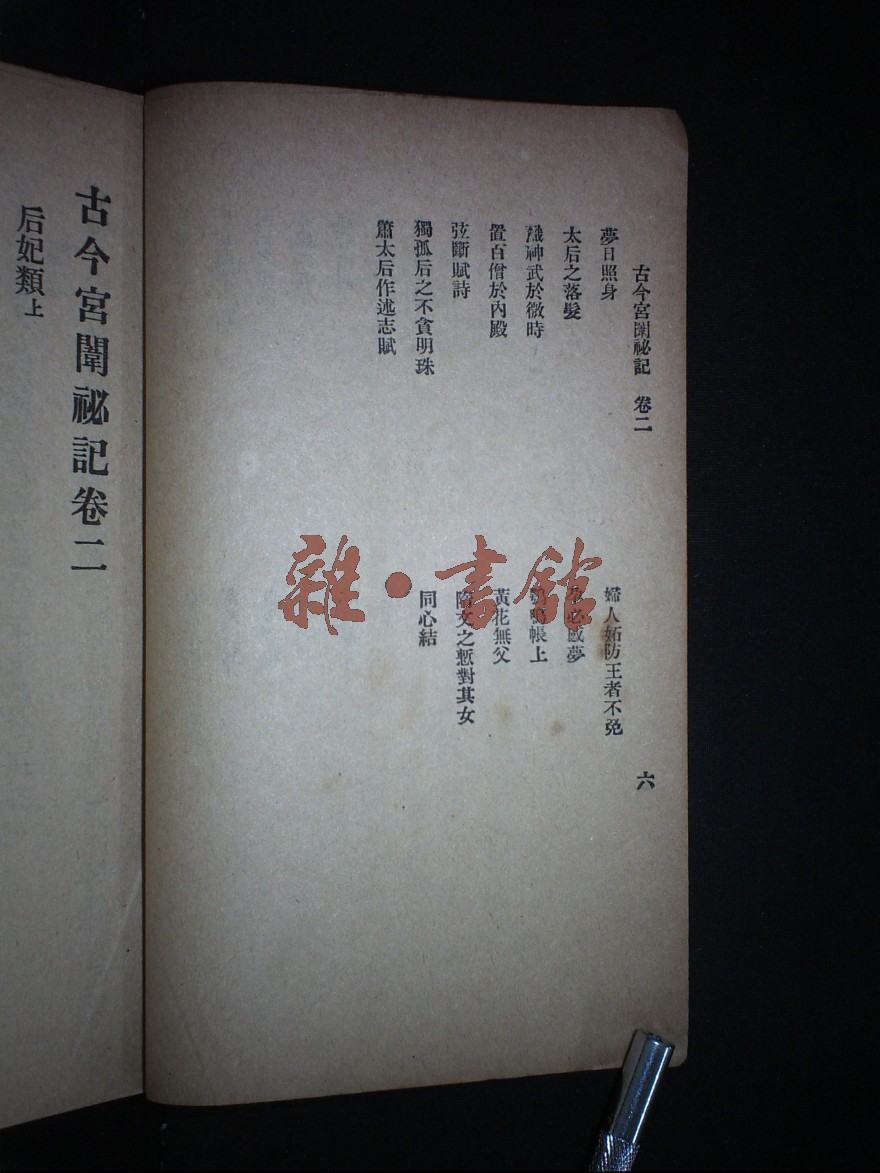 古今宮闈祕記 卷二
六
夢日照身
婦人妬防王者不免
太后之落髮
必感夢
識神武於微時
帳上
置百僧於內殿
黃花無父
弦斷賦詩
隋文之慙對其女
獨孤后之不貪明珠
同心結
蕭太后作述志賦
古今宮闈祕記卷二
后妃類上
雜·書館